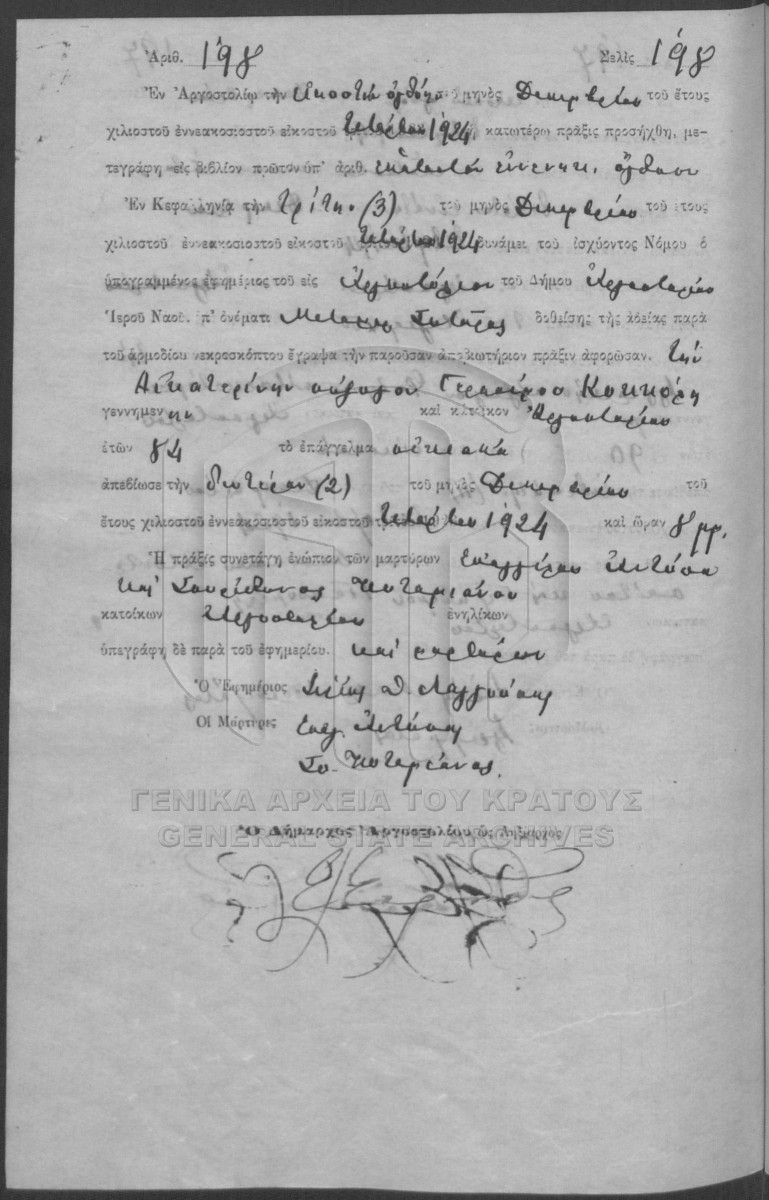 Ἀριθ. 198 Σελὶς 198
Ἐν Ἀργοστολίῳ τὴν εἰκοστὴν ὀγδόην τοῦ μηνὸς Δεκεμβρίου τοῦ ἔτους
χιλιοστοῦ ἐννεακοσιοστοῦ εἰκοστοῦ τετάρτου 1924, κατωτέρω πρᾶξις προσήχθη, με-
τεγράφη εἰς βιβλίον πρῶτον ὑπ' ἀριθ. ἑκατοστὸν ἐννενηκ. ὄγδοον
Ἐν Κεφαλληνίᾳ τὴν τρίτην (3) τοῦ μηνὸς Δεκεμβρίου τοῦ ἔτους
χιλιοστοῦ ἐννεακοσιοστοῦ εἰκοστοῦ τετάρτου 1924 δυνάμει τοῦ ἰσχύοντος Νόμου ὁ
ὑπογραμμένος ἐφημέριος τοῦ εἰς Ἀργοστόλιον τοῦ Δήμου Ἀργοστολίου
Ἱεροῦ Ναοῦ ἐπ' ὀνόματι Σωτῆρος δοθείσης τῆς ἀδείας παρὰ
τοῦ ἁρμοδίου νεκροσκόπτου ἔγραψα τὴν παροῦσαν ἀποβιωτήριον πρᾶξιν ἀφορῶσαν. τὴν
Αἰκατερίνην σύζυγον Γερασίμου Κοκκόρη
γεννημένην καὶ κάτοικον Ἀργοστολίου
ἐτῶν 84 τὸ ἐπάγγελμα οἰκιακά
ἀπεβίωσε τὴν δευτέραν (2) τοῦ μηνὸς Δεκεμβρίου τοῦ
ἔτους χιλιοστοῦ ἐννεακοσιοστοῦ εἰκοστοῦ τετάρτου 1924 καὶ ὥραν 8 μμ.
Ἡ πρᾶξις συνετάγη ἐνώπιον τῶν μαρτύρων Εὐαγγέλου Ἀντύπα
καὶ Σπυρίδωνος Ποταμιάνου
κατοίκων Ἀργοστολίου ἐνηλίκων
ὑπεγράφη δὲ παρὰ τοῦ ἐφημερίου. καὶ μαρτύρων
Ὁ Ἐφημέριος
Οἱ Μάρτυρες Εὐαγ. Ἀντύπας
Σπ. Ποταμιάνος.
ΓΕΝΙΚΑ ΑΡΧΕΙΑ ΤΟΥ ΚΡΑΤΟΥΣ
Ὁ Δήμαρχος Ἀργοστολίου ὡς Ληξίαρχος
GENERAL STATE ARCHIVES